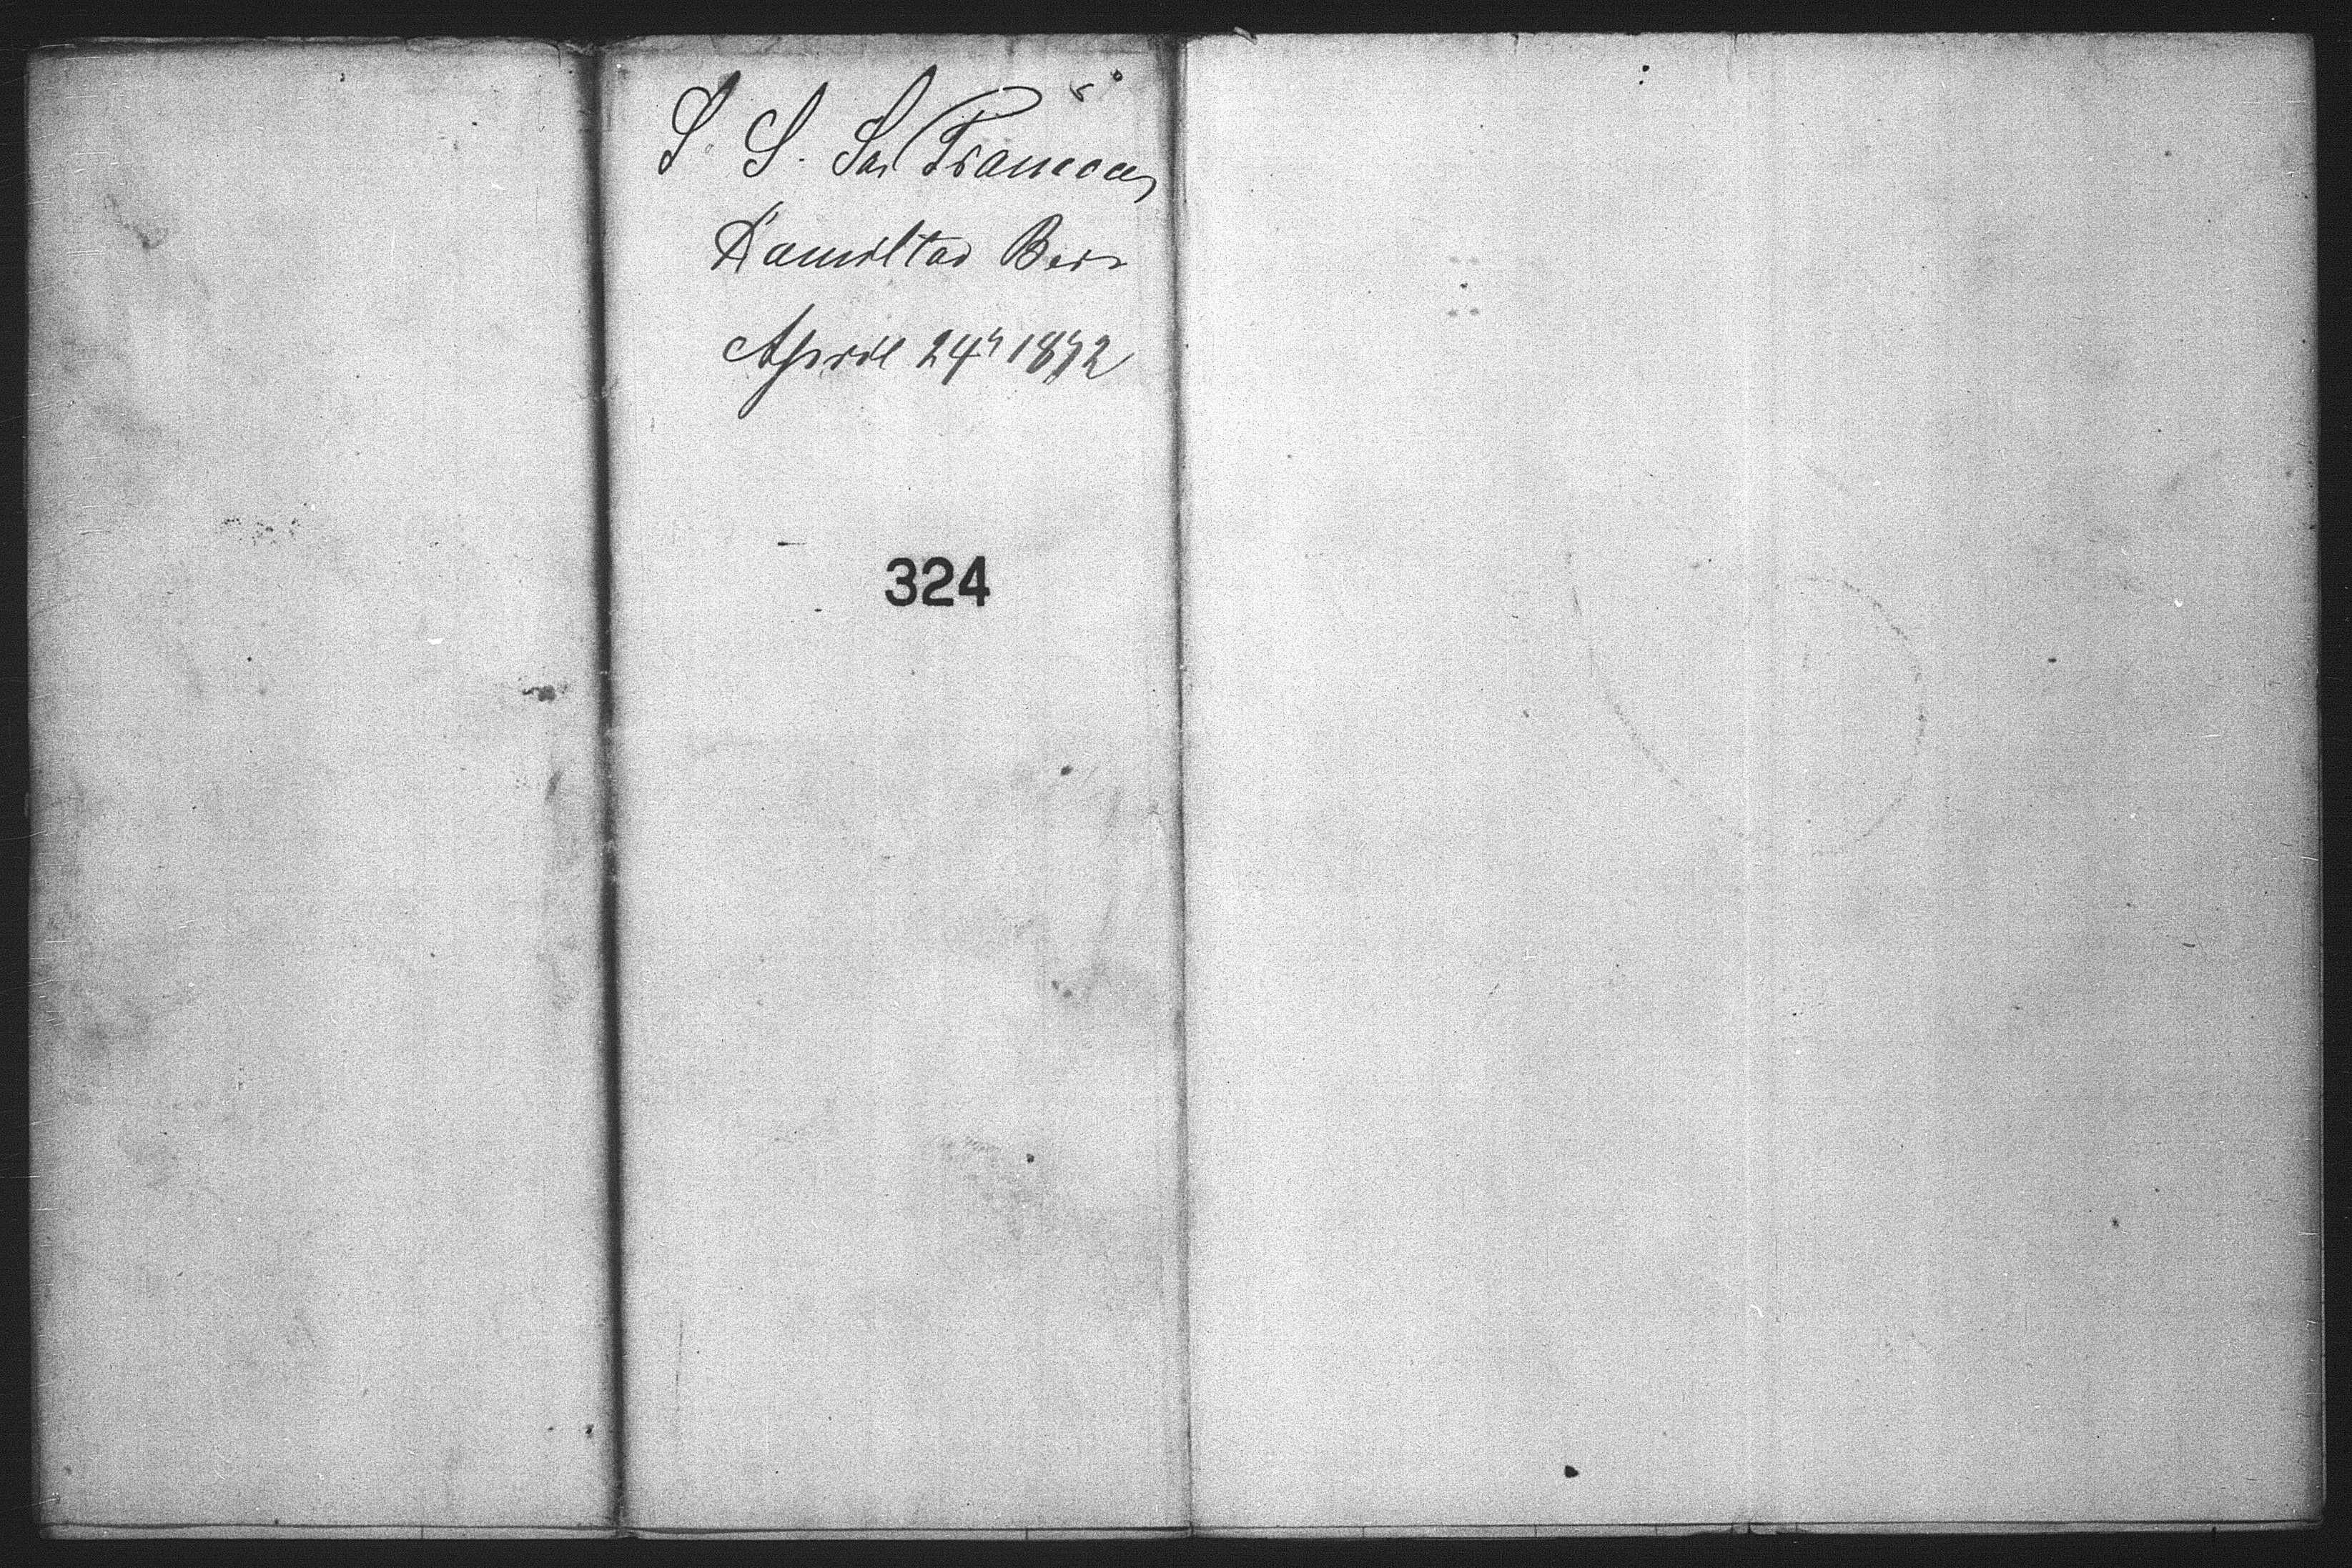 S. S. San Francisco
Hamilton Ber
April 24" 1872
324